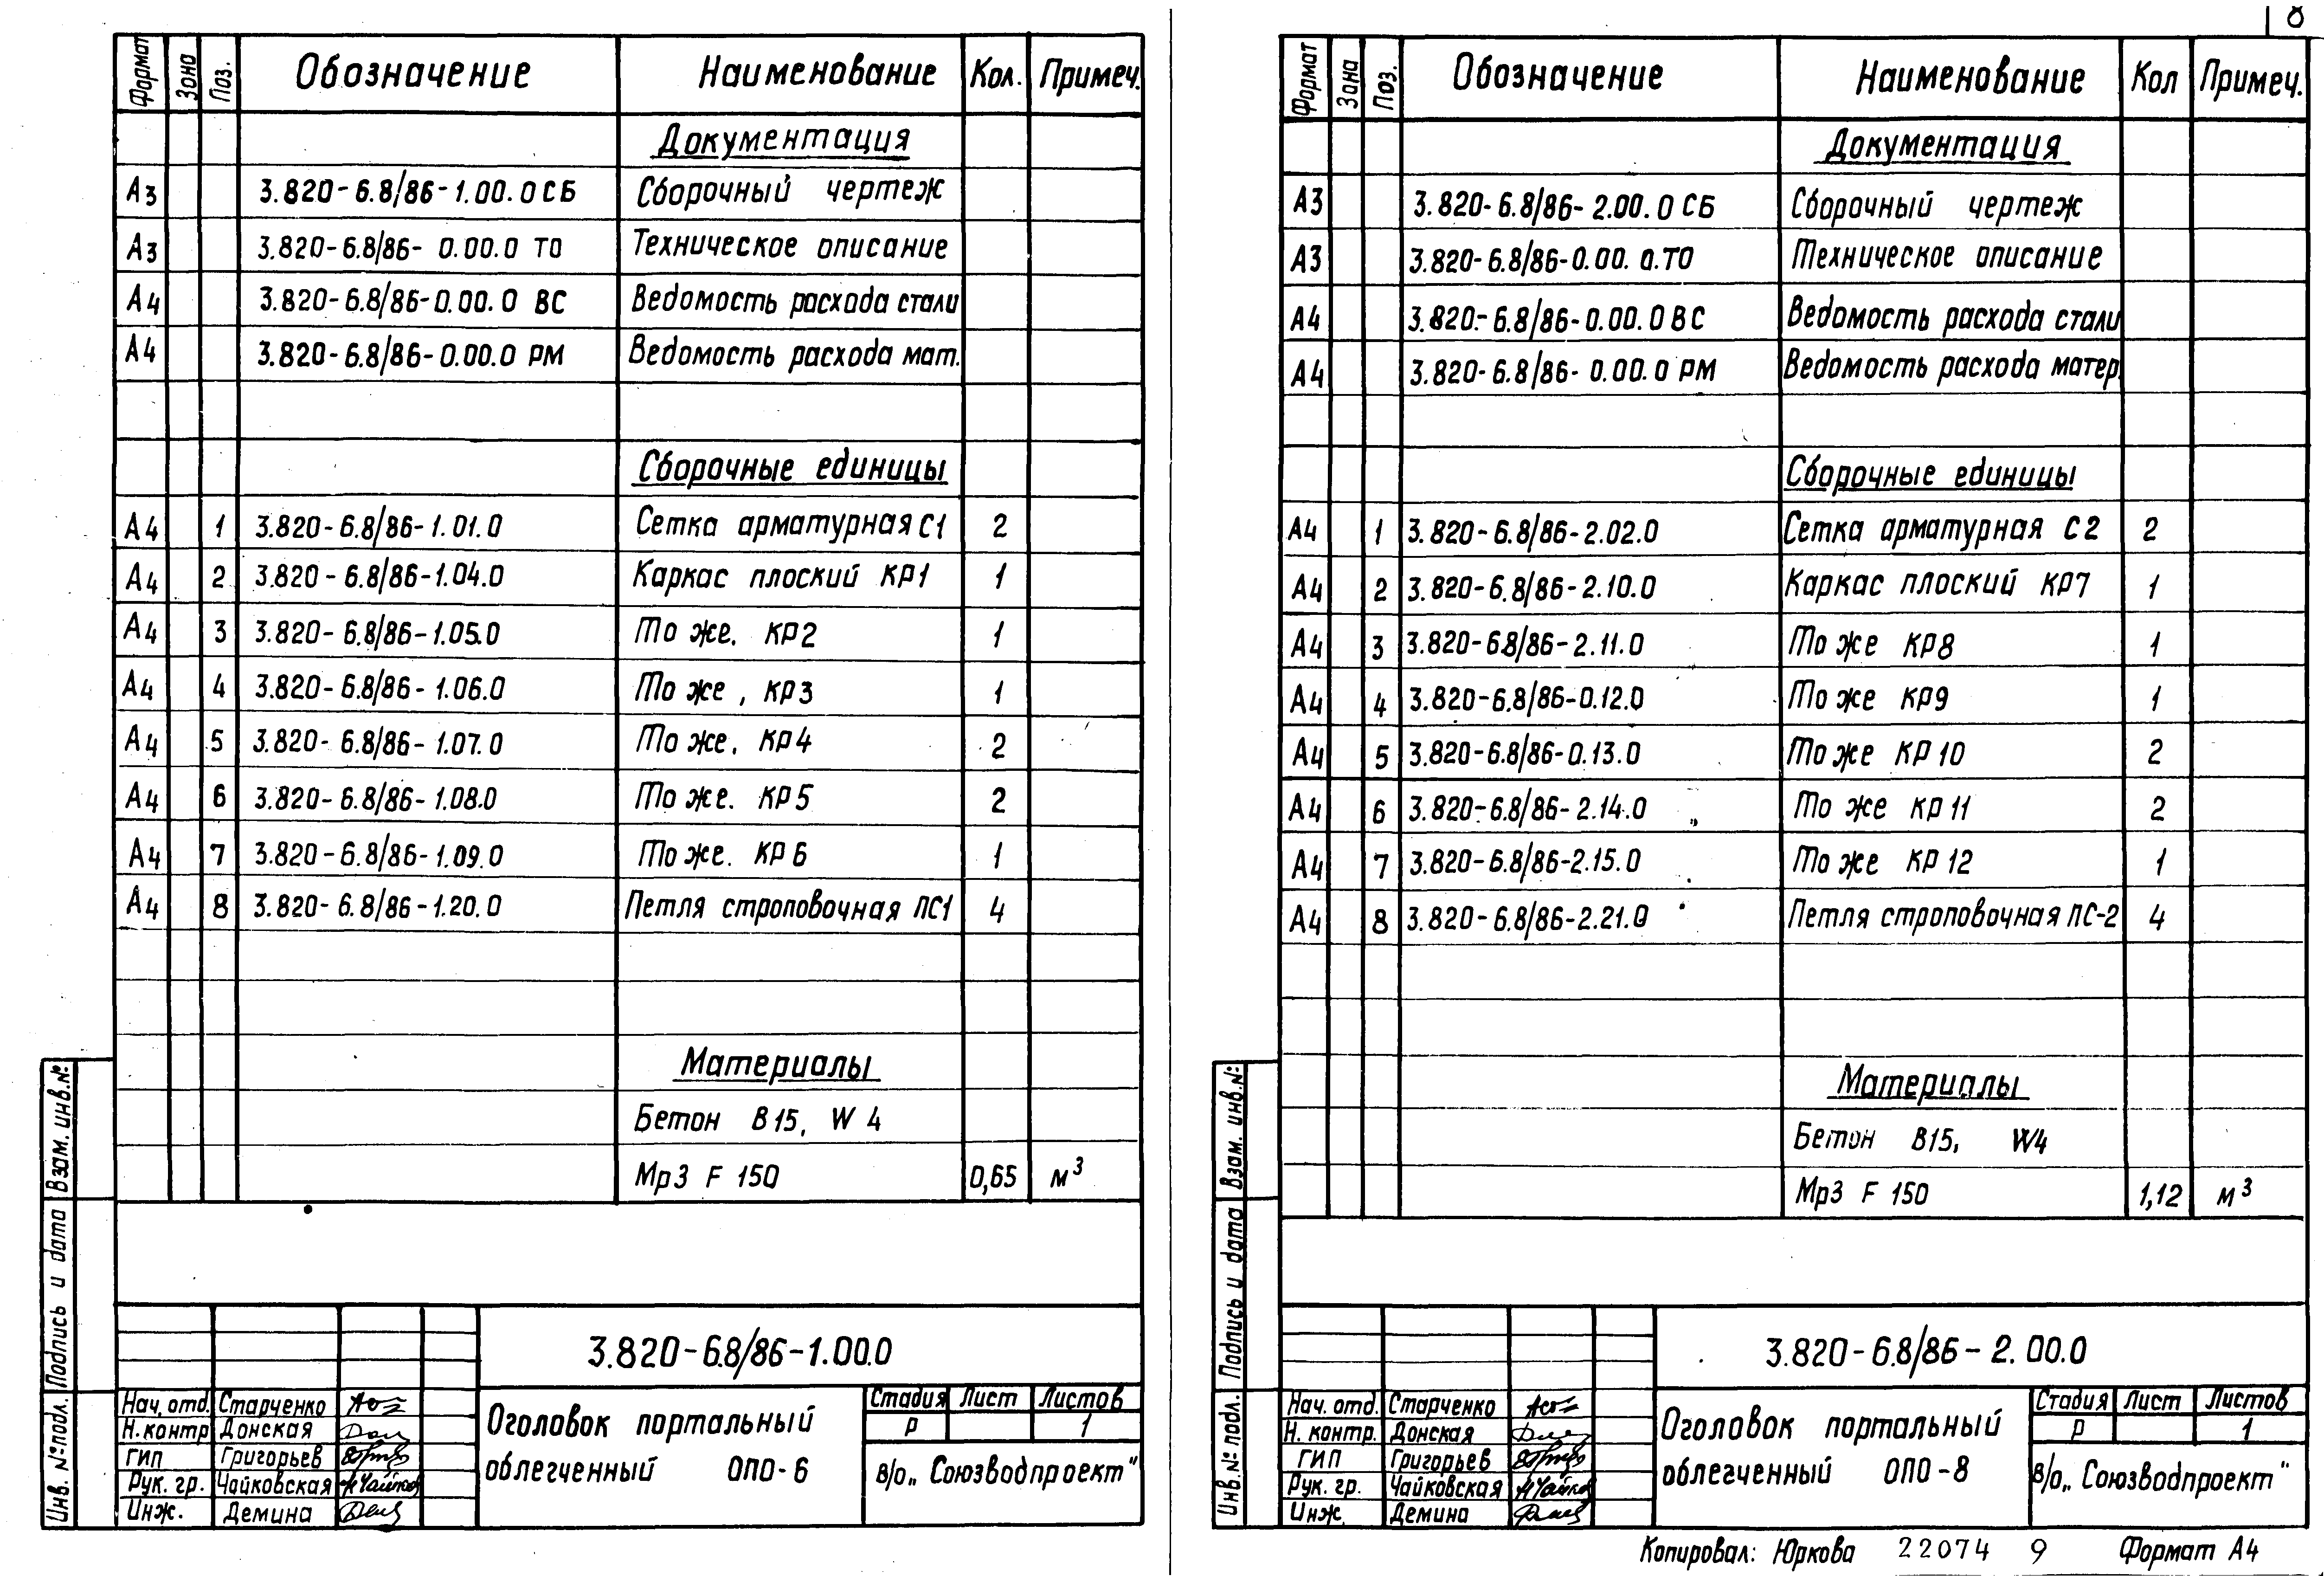 8
Формат Зона Поз. Обозначение Наименование Кол. Примеч.
Документация
А3 3.820-6.8/86-1.00.0 СБ Сборочный чертеж
А3 3.820-6.8/86-0.00.0 ТО Техническое описание
А4 3.820-6.8/86-0.00.0 ВС Ведомость расхода стали
А4 3.820-6.8/86-0.00.0 РМ Ведомость расхода мат.
Сборочные единицы
А4 1 3.820-6.8/86-1.01.0 Сетка арматурная С1 2
А4 2 3.820-6.8/86-1.04.0 Каркас плоский КР1 1
А4 3 3.820-6.8/86-1.05.0 То же. КР2 1
А4 4 3.820-6.8/86-1.06.0 То же, КР3 1
А4 5 3.820-6.8/86-1.07.0 То же. КР4 2
А4 6 3.820-6.8/86-1.08.0 То же. КР5 2
А4 7 3.820-6.8/86-1.09.0 То же. КР6 1
А4 8 3.820-6.8/86-1.20.0 Петля строповочная ПС1 4
Материалы
Бетон В15, W4
Мрз F 150 0,65 м³
Взам. инв.№
Подпись и дата
Инв. № подл.
3.820-6.8/86-1.00.0
Нач. отд. Старченко
Н. контр Донская
ГИП Григорьев
Рук. гр. Чайковская
Инж. Демина
Оголовок портальный
облегченный ОПО-6
Стадия Лист Листов
Р 1
в/о „Союзводпроект"
Формат Зона Поз. Обозначение Наименование Кол Примеч.
Документация
А3 3.820-6.8/86-2.00.0 СБ Сборочный чертеж
А3 3.820-6.8/86-0.00.0.ТО Техническое описание
А4 3.820-6.8/86-0.00.0 ВС Ведомость расхода стали
А4 3.820-6.8/86-0.00.0 РМ Ведомость расхода матер.
Сборочные единицы
А4 1 3.820-6.8/86-2.02.0 Сетка арматурная С2 2
А4 2 3.820-6.8/86-2.10.0 Каркас плоский КР7 1
А4 3 3.820-6.8/86-2.11.0 То же КР8 1
А4 4 3.820-6.8/86-0.12.0 То же КР9 1
А4 5 3.820-6.8/86-0.13.0 То же КР10 2
А4 6 3.820-6.8/86-2.14.0 То же КР11 2
А4 7 3.820-6.8/86-2.15.0 То же КР12 1
А4 8 3.820-6.8/86-2.21.0 Петля строповочная ПС-2 4
Материалы
Бетон В15, W4
Мрз F 150 1,12 м³
Взам. инв.№
Подпись и дата
Инв. № подл.
3.820-6.8/86-2.00.0
Нач. отд. Старченко
Н. контр. Донская
ГИП Григорьев
Рук. гр. Чайковская
Инж. Демина
Оголовок портальный
облегченный ОПО-8
Стадия Лист Листов
Р 1
в/о „Союзводпроект"
Копировал: Юркова 22074 9 Формат А4